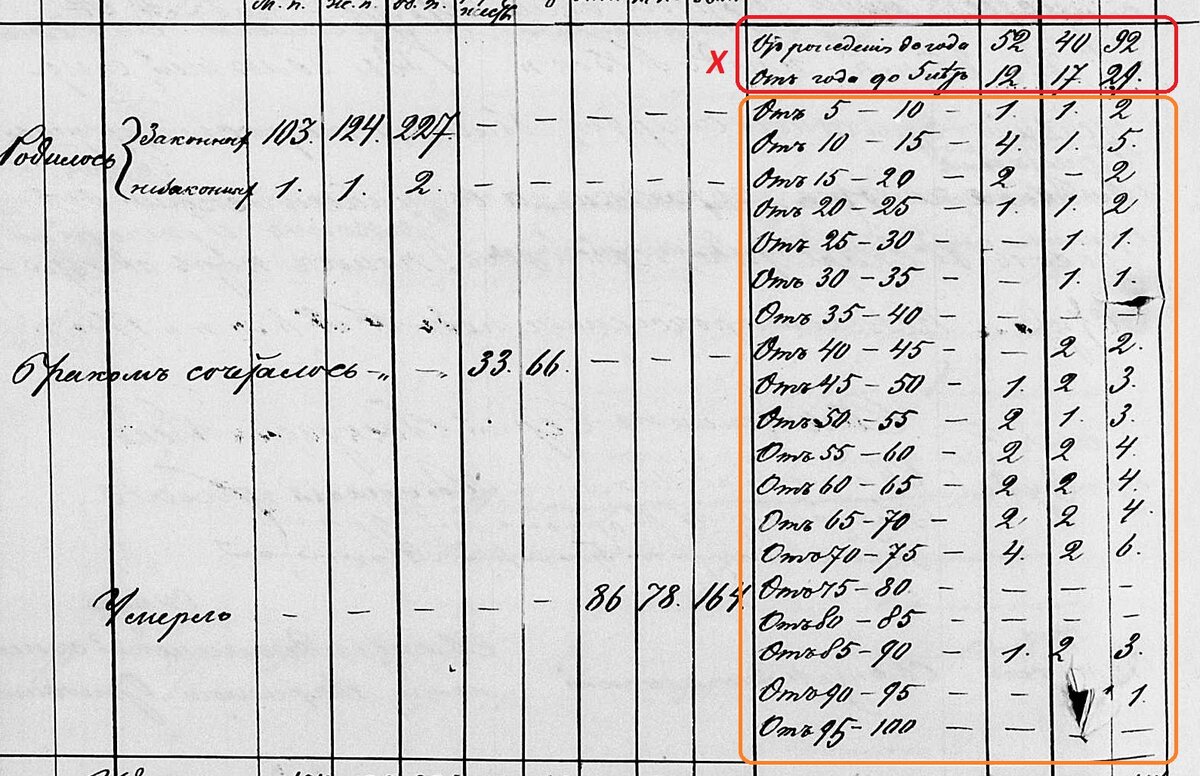 м. п. ж. п. об. п.
X
Отъ рожденiя до года 52 40 92
Отъ года до 5 лѣтъ 12. 17. 29.
Отъ 5 — 10 — 1. 1. 2
Родилось { Законных 103. 124. 227. — — — — —
Отъ 10 — 15 — 4. 1. 5.
незаконных 1. 1. 2. — — — — —
Отъ 15 — 20 — 2 — 2
Отъ 20 — 25 — 1. 1. 2
Отъ 25 — 30 — — 1. 1.
Отъ 30 — 35 — — 1. 1.
Отъ 35 — 40 — — — —
Отъ 40 — 45 — — 2 2.
Бракомъ сочеталось —„ — „ 33. 66. — — —
Отъ 45 — 50 — 1. 2 3.
Отъ 50 — 55 — 2 1. 3.
Отъ 55 — 60 — 2 2 4.
Отъ 60 — 65 — 2 2 4.
Отъ 65 — 70 — 2. 2 4.
Отъ 70 — 75 — 4. 2 6.
Отъ 75 — 80 — — — —
Умерло — — — — — 86 78. 164
Отъ 80 — 85 — — — —
Отъ 85 — 90 — 1. 2 3.
Отъ 90 — 95 — — 1.
Отъ 95 — 100 — — — —